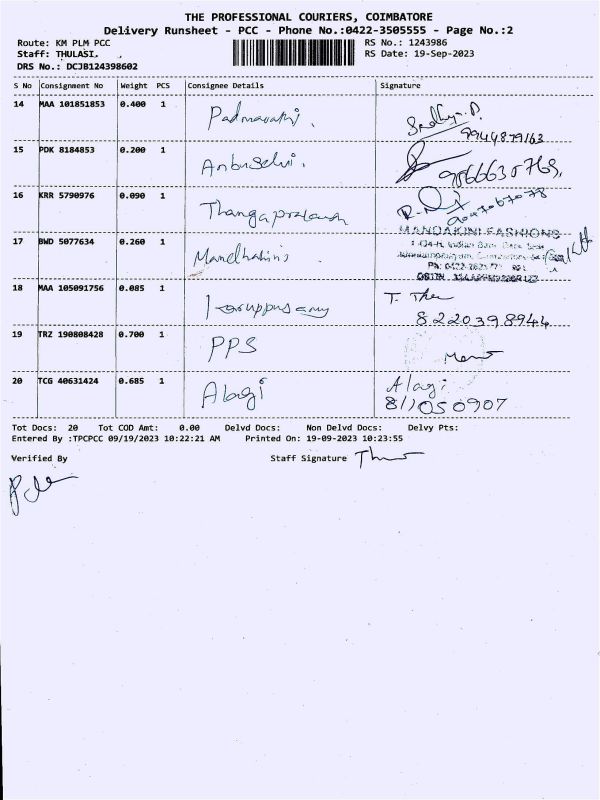 THE PROFESSIONAL COURIERS, COIMBATORE
Delivery Runsheet - PCC - Phone No.:0422-3505555 - Page No.:2
Route: KM PLM PCC RS No.: 1243986
Staff: THULASI, RS Date: 19-Sep-2023
DRS No.: DCJB124398602
S No Consignment No Weight PCS Consignee Details Signature
14 MAA 101851853 0.400 1 Padmavathi. Sndhya.P.
9944879163
15 PDK 8184853 0.200 1 Anbuselvi.
16 KRR 5790976 0.090 1 Thangaprakash
MANDAKINI FASHIONS
17 BWD 5077634 0.260 1
18 MAA 105091756 0.085 1 T. Ther
8220398944
19 TRZ 190808428 0.700 1 PPS
20 TCG 40631424 0.685 1 Alagi Alagi
811050907
Tot Docs: 20 Tot COD Amt: 0.00 Delvd Docs: Non Delvd Docs: Delvy Pts:
Entered By :TPCPCC 09/19/2023 10:22:21 AM Printed On: 19-09-2023 10:23:55
Verified By Staff Signature